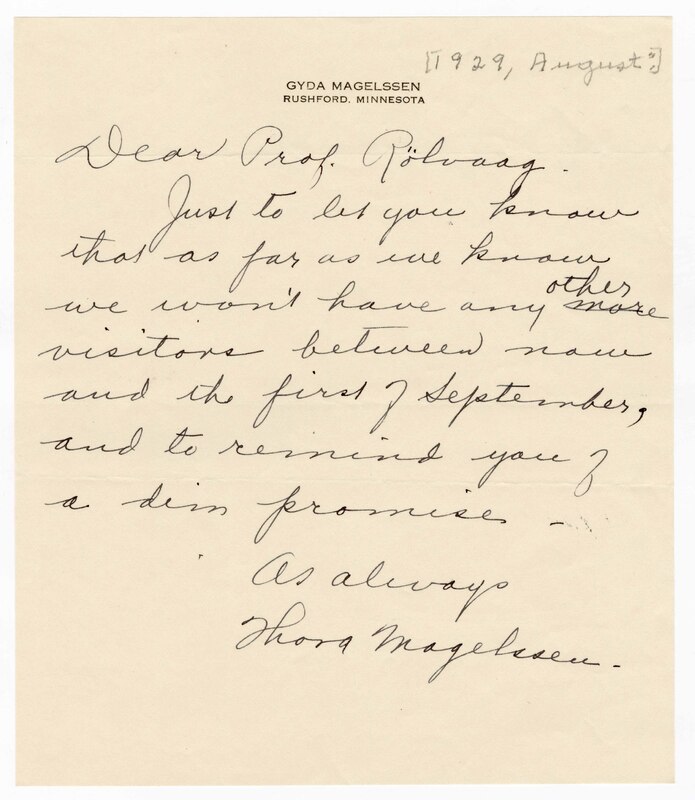 [1929, August?]
GYDA MAGELSSEN
RUSHFORD, MINNESOTA
Dear Prof. Rölvaag.
Just to let you know
that as far as we know
we won't have any other more
visitors between now
and the first of September,
and to remind you of
a dim promise -
As always
Thora Magelssen.